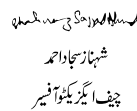 شہناز سجاد احمد
چیف ایگزیکٹو آفیسر